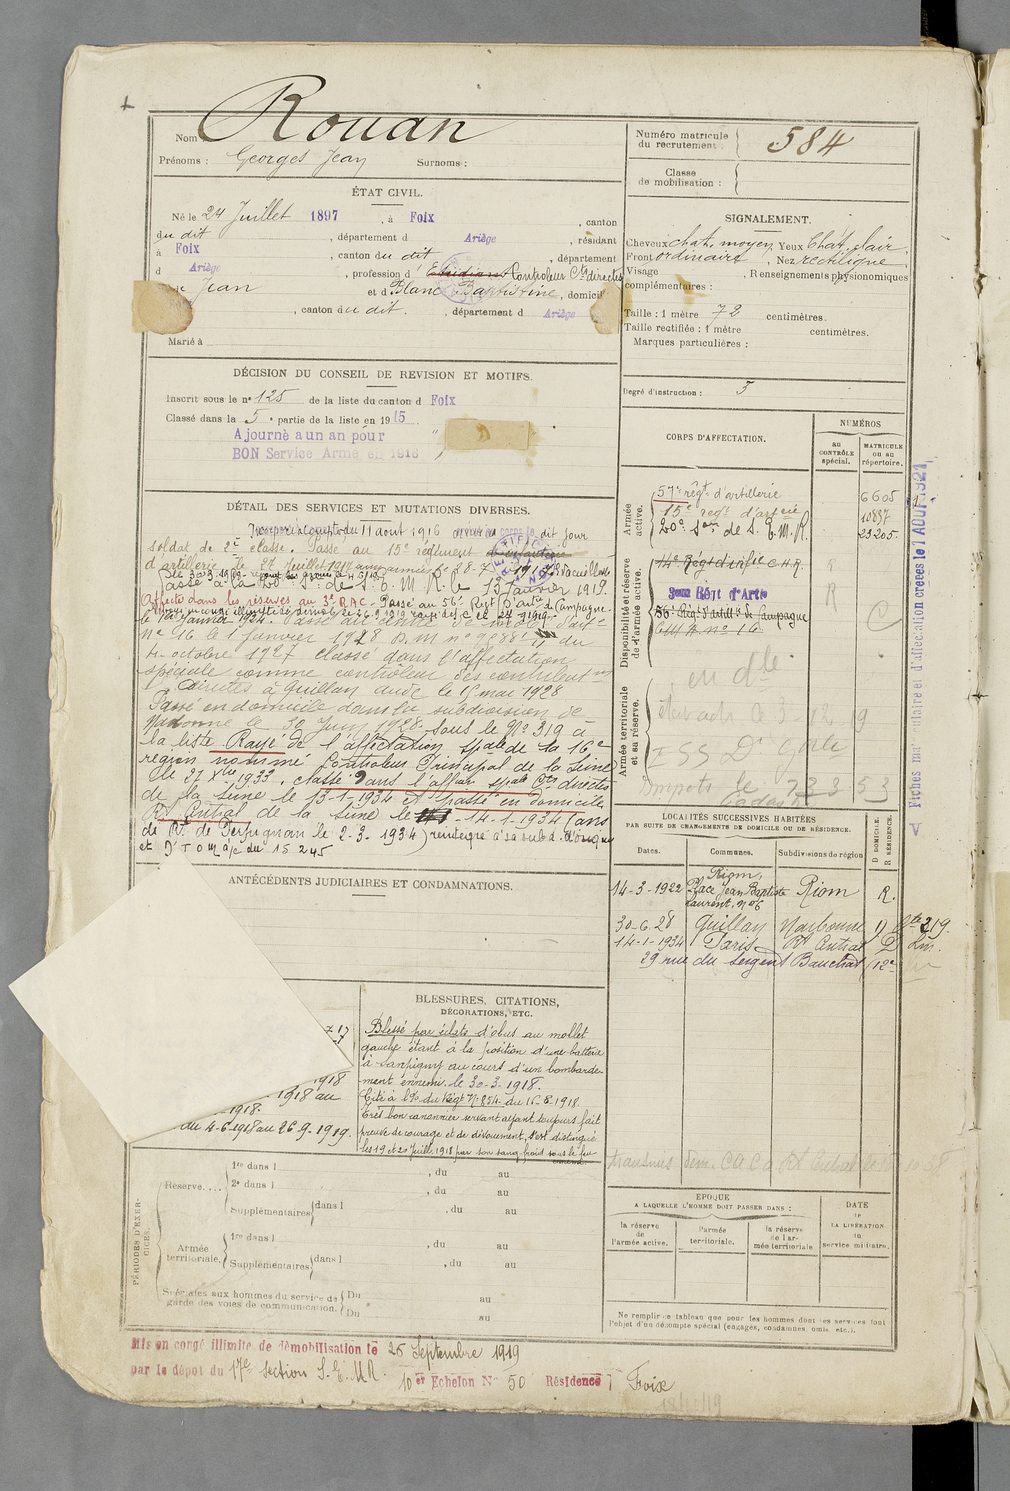 Nom : Rouan
Prénoms : Georges Jean Surnoms :
Numéro matricule du recrutement : 584
Classe de mobilisation :
ÉTAT CIVIL.
Né le 24 Juillet 1897, à Foix, canton
du dit, département d Ariège, résidant
à Foix, canton du dit, département
d Ariège, profession d' Etudiant Controleur Ctions directes
Jean et d Blanc Baptistine, domicil
, canton du dit, département d Ariège
Marié à
SIGNALEMENT.
Cheveux chat. moyen Yeux Chat. clair
Front ordinaire, Nez rectiligne
Visage , Renseignements physionomiques
complémentaires :
Taille : 1 mètre 72 centimètres.
Taille rectifiée : 1 mètre centimètres.
Marques particulières :
Degré d'instruction : 3
DÉCISION DU CONSEIL DE REVISION ET MOTIFS.
Inscrit sous le n° 125 de la liste du canton d Foix
Classé dans la 5e partie de la liste en 1915.
Ajourné à un an pour
BON Service Armé en 1916
DÉTAIL DES SERVICES ET MUTATIONS DIVERSES.
Incorporé à compter du 11 aout 1916 arrivé au corps le dit jour
soldat de 2e classe. Passé au 15e régiment d'infanterie
d'artillerie le 27 Juillet 1917
passé à la 20e Son de S. E. M. R. le 13 Janvier 1919.
Affecté dans les réserves au 3e R.A.C. Passé au 56e Régt d'Artie de Campagne
le 1er Janvier 1924. Passé au centre de mob. d'artie
n° 16 le 1 Janvier 1928 D.M n° 9688 du
4 octobre 1927 classé dans l'affectation
spéciale comme contrôleur des contributions
directes à Quillan aude le 1er mai 1928
Passé en domicile dans la subdivision de
Narbonne le 30 Juin 1928. Sous le N° 319 à
la liste. Rayé de l'affectation spale de la 16e
région nommé Controleur Principal de la Seine
le 27 Xbre 1933. classé dans l'affon spale Ctes directes
de la Seine le 13-1-1934 et passé en domicile
Rt Central de la Seine le 14-1-1934 (ans
de Rt de Perpignan le 2-3-1934) réintégré à sa subd. d'origine
et D
CORPS D'AFFECTATION.
NUMÉROS
au CONTRÔLE spécial.
MATRICULE ou au répertoire.
Armée active.
57e régt d'artillerie 6605
15e régt d'artie 10837
20e Son de S. E. M. R. 23205
Disponibilité et réserve de l'armée active.
14e Régt d'artie C.H.R. R
3eme Régt d'Artie R
56e Régt d'artie de Campagne
C M A n° 16
Armée territoriale et sa réserve.
en dle
Fiches matriculaire et d'affectation créées le 1 AOUT 1921
LOCALITÉS SUCCESSIVES HABITÉES
PAR SUITE DE CHANGEMENTS DE DOMICILE OU DE RÉSIDENCE.
Dates. Communes. Subdivisions de région D DOMICILE. R RÉSIDENCE.
14-3-1922 Riom, Place Jean Baptiste Laurent, n° 6 Riom R.
30-6-28 Quillan Narbonne D Lte 319
14-1-1934 Paris Rt Central D
29 rue du Sergent Bauchat (12e
ANTÉCÉDENTS JUDICIAIRES ET CONDAMNATIONS.
1918
1918 au
1918.
du 4-6-1918 au 26-9-1919.
BLESSURES, CITATIONS,
DÉCORATIONS, ETC.
Blessé par éclats d'obus au mollet
gauche étant à la position d'une batterie
à Sampigny au cours d'un bombarde-
ment ennemi. le 30-3-1918.
Cité à l'O. du Régt N° 254 du 15.8.1918.
Très bon canonnier servant ayant toujours fait
preuve de courage et de dévouement, s'est distingué
les 19 et 20 Juillet 1918 par son sang-froid sous le feu
ennemi.
PÉRIODES D'EXERCICES.
Réserve....
1re dans l , du au
2e dans l , du au
Supplémentaires dans l , du au
Armée territoriale.
1re dans l , du au
Supplémentaires dans l , du au
Spéciales aux hommes du service de garde des voies de communication.
Du au
Du au
EPOQUE
A LAQUELLE L'HOMME DOIT PASSER DANS :
la réserve de l'armée active.
l'armée territoriale.
la réserve de l'armée territoriale
DATE de LA LIBÉRATION du service militaire.
Ne remplir ce tableau que pour les hommes dont les services font
l'objet d'un décompte spécial (engagés, condamnés, omis, etc.).
Mis en congé illimité de démobilisation le 25 Septembre 1919
par le dépot du 17e section S. E. M R.
10er Echelon N° 50 Résidence Foix